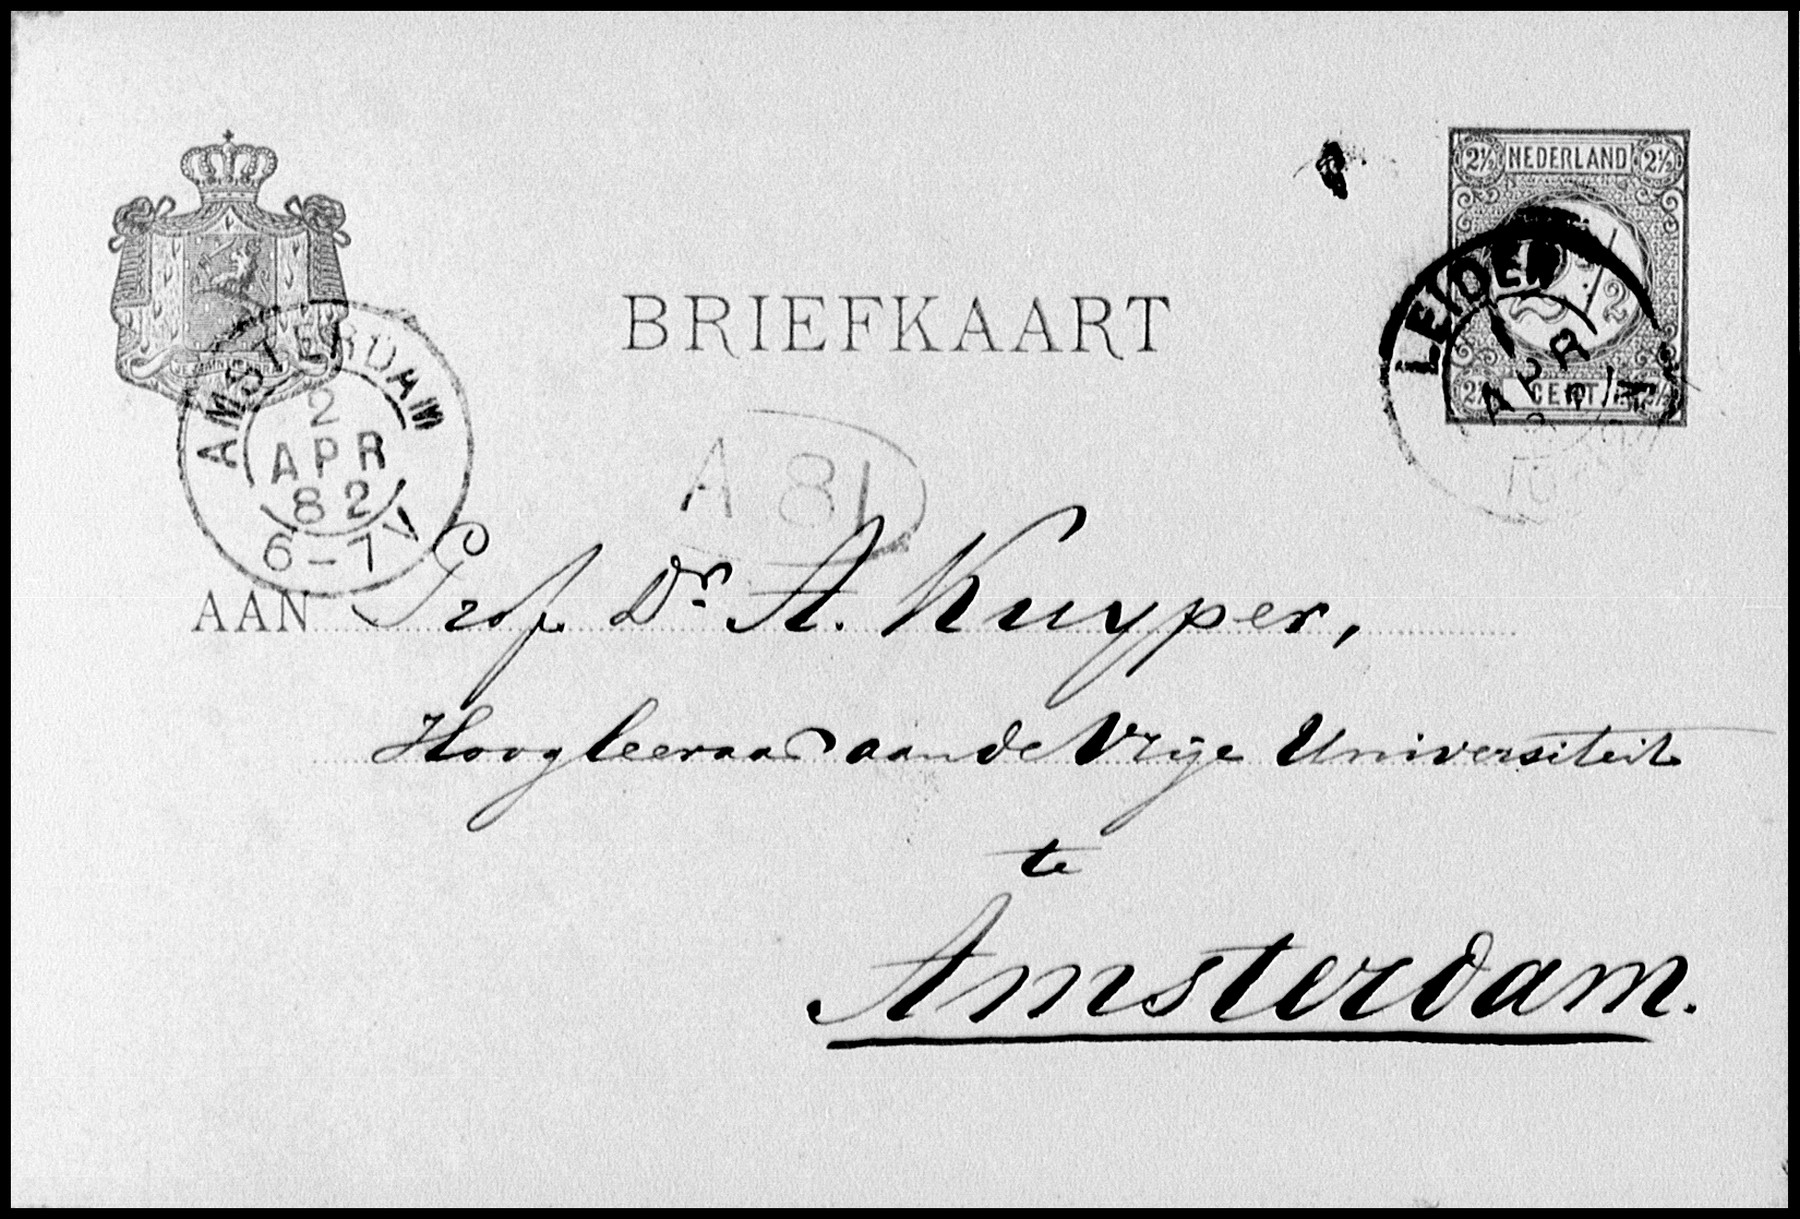 2½ NEDERLAND 2½
LEIDEN
APR
2½ CENT 2½
JE MAINTIENDRAI
BRIEFKAART
AMSTERDAM
2
APR
82
6-7 V
A 81
AAN Prof. Dr. A. Kuyper,
Hoogleeraar aan de Vrije Universiteit
te
Amsterdam.